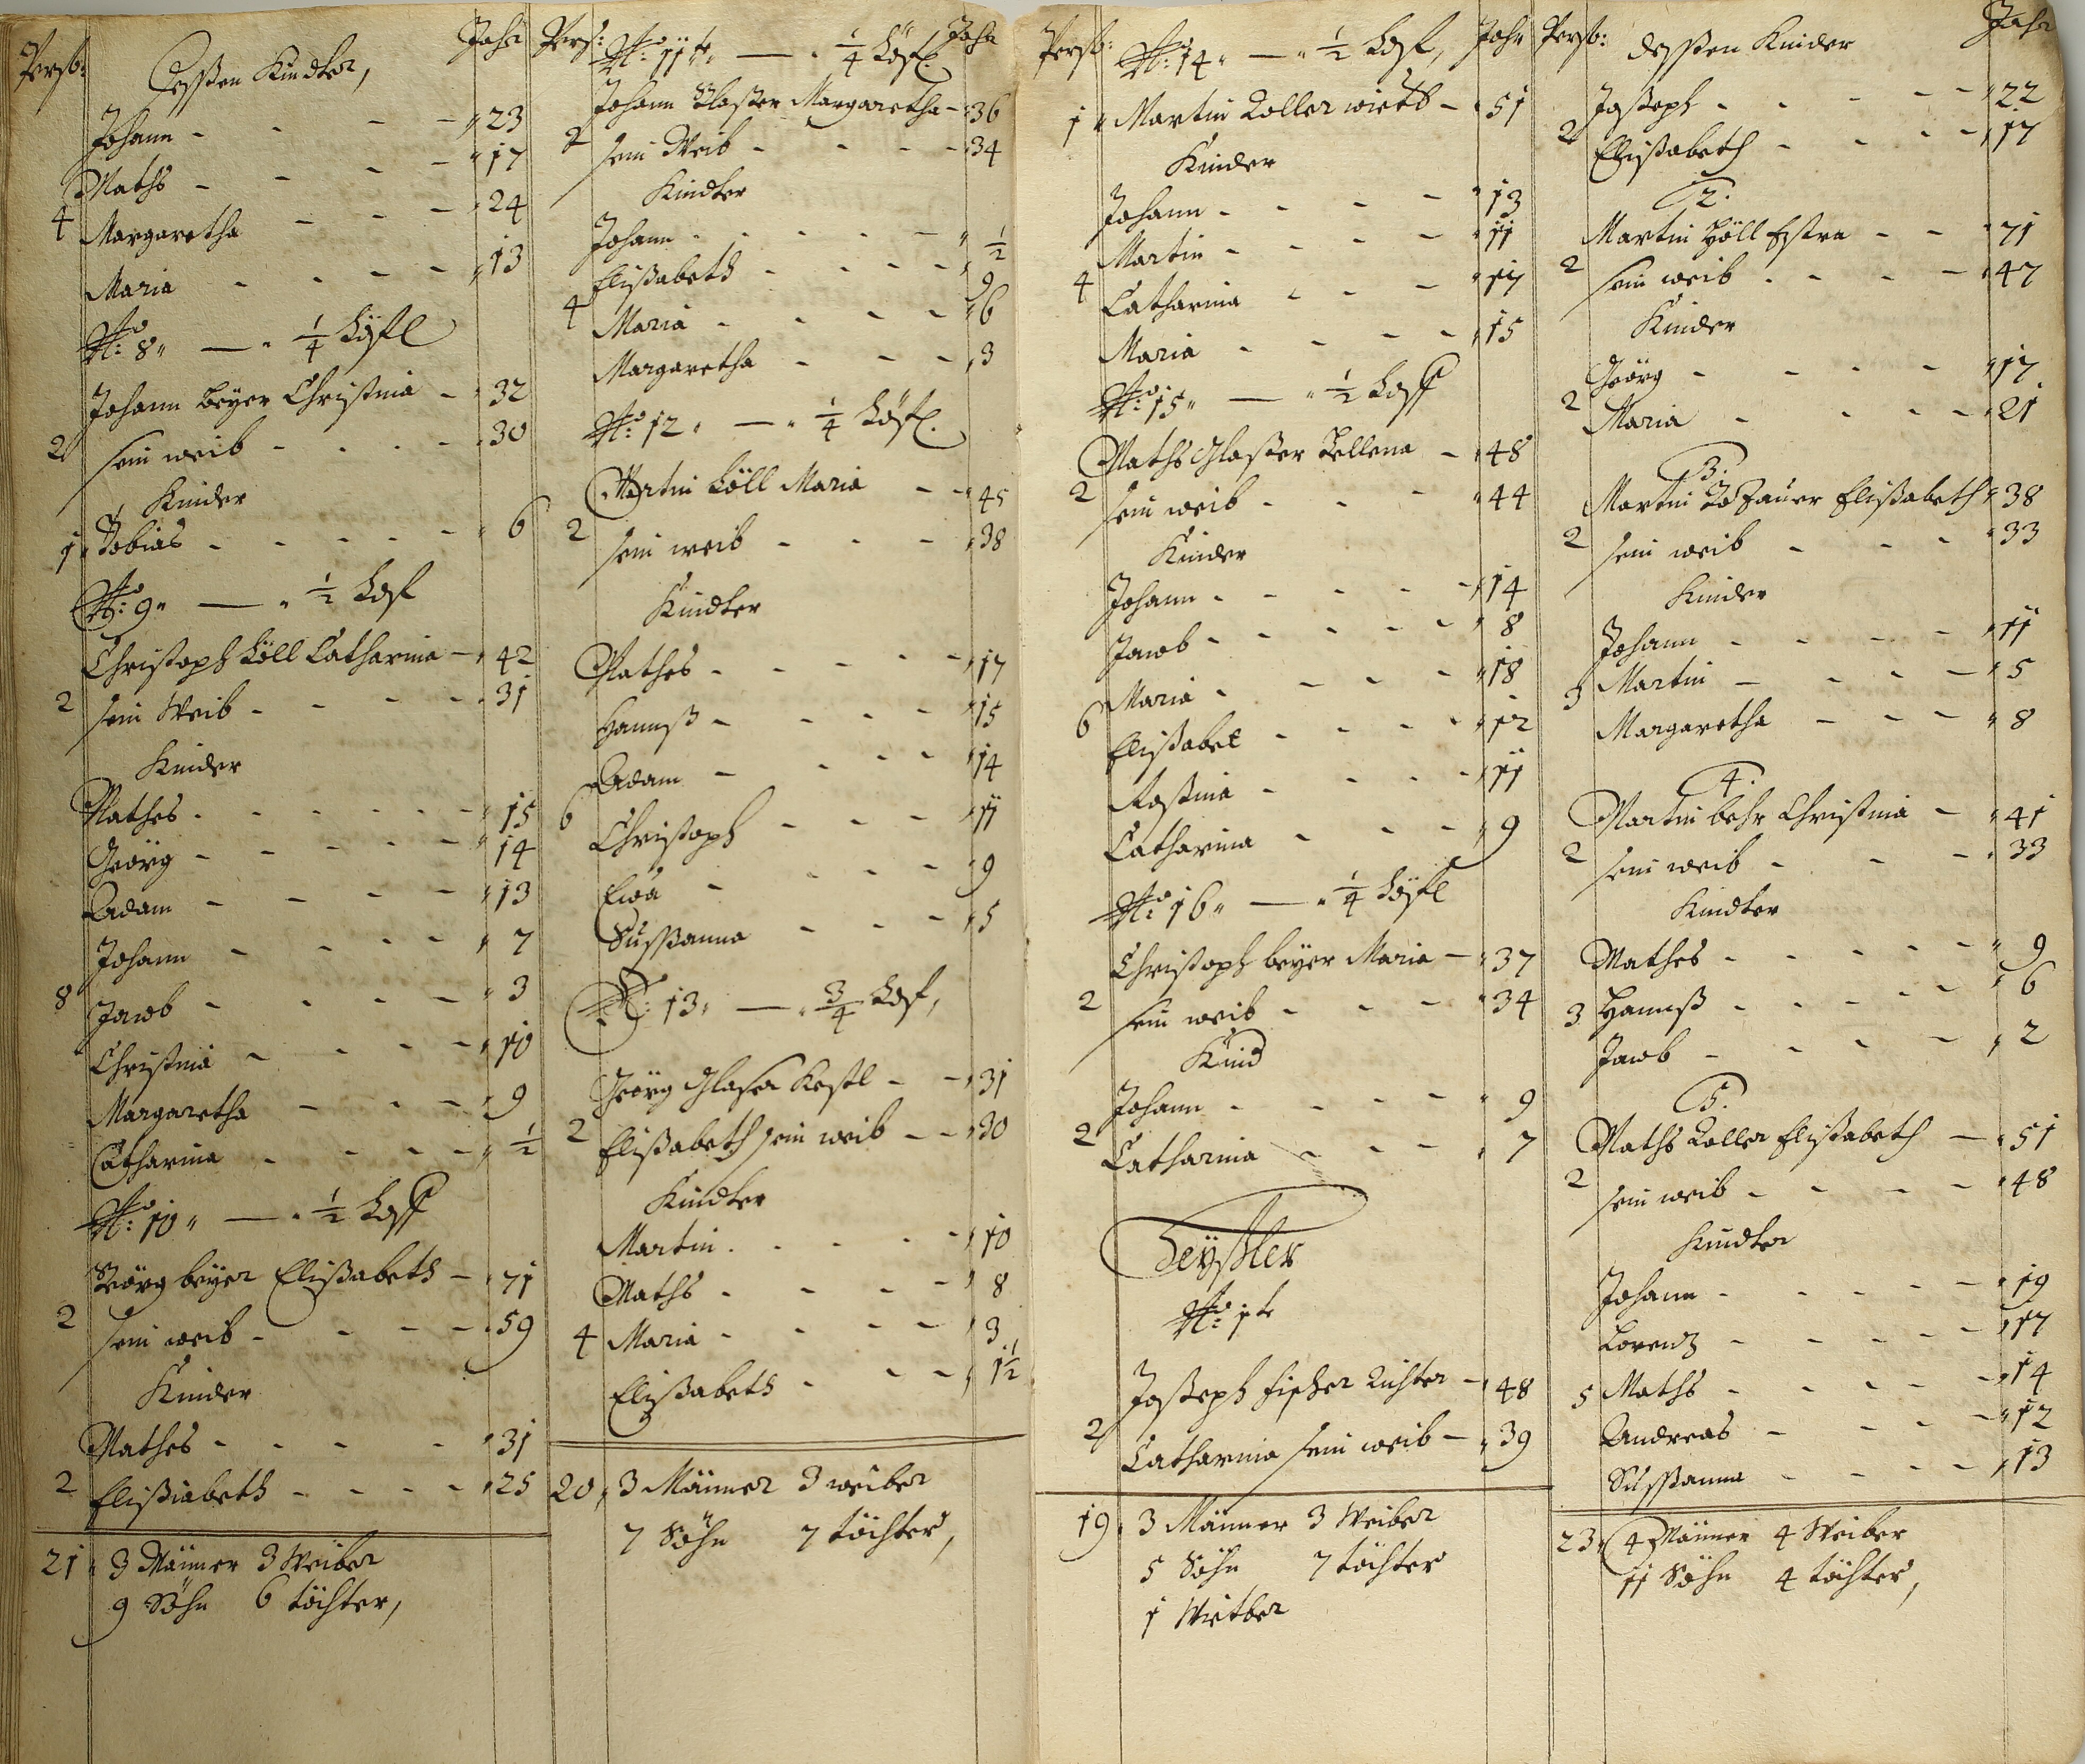 Perso: Desßen Kindter, Jahr
Johann - - - - " 23
Maths - - - - " 17
4 Margaretha - - - " 24
Maria - - - - " 13
No: 8 " — " 1/4 Höfl
Johann beyer Christina - " 32
2 sein weib - - - - " 30
Kinder
1 " Tobias - - - - - " 6
No: 9 " — " 1/2 Hof
Christoph Löll Catharina - " 42
2 sein Weib - - - - " 31
Kinder
Mathes - - - - - " 15
Geörg - - - - - " 14
Adam - - - - " 13
Johann - - - - " 7
8 Jacob - - - - " 3
Christina - - - - " 10
Margaretha - - - " 9
Catharina - - - - " 1/2
No: 10 " — " 1/2 Hoff
Geörg beyer Elisßabeth - " 71
2 sein weib - - - - " 59
Kinder
Mathes - - - - " 31
2 Elisßabeth - - - - " 25
21 " 3 Männer 3 Weiber
9 Söhn 6 töchter,
Pers: No: 11te " — " 1/4 Höfl. Jahr
Johann Glaßer Margaretha - " 36
2 sein Weib - - - - " 34
Kindter
Johann - - - - - " 1/2
Elisßabeth - - - - " 9
4 Maria - - - - " 6
Margaretha - - - " 3
No: 12 " — " 1/4 Höfl.
Martin Löll Maria - - " 45
2 sein weib - - - " 38
Kindter
Mathes - - - - - " 17
Hannß - - - - " 15
Adam - - - - " 14
6 Christoph - - - " 11
Eva - - - - " 9
Susßanna - - - " 5
No: 13 " — " 3/4 Hof,
Geörg Glaser Kestl - - " 31
2 Elisßabeth sein weib - - " 30
Kindter
Martin - - - - - " 10
Maths - - - - " 8
4 Maria - - - - " 3
Elisßabeth - - - " 1 1/2
20 " 3 Männer 3 weiber
7 Söhn 7 töchter,
Perso: No: 14 " — " 1/2 Hof, Jahr
1 " Martin Koller wietb - " 51
Kinder
Johann - - - - " 13
Martin - - - - " 11
4 Catharina - - - " 17
Maria - - - - " 15
No: 15 " — " 1/2 Hoff
Maths Glaßer Hellena - " 48
2 sein weib - - - " 44
Kinder
Johann - - - - - " 14
Jacob - - - - - " 8
Maria - - - - " 18
6 Elisßabet - - - - " 12
Rosina - - - - " 11
Catharina - - - " 9
No: 16 " — " 1/4 Höfl
Christoph beyer Maria - " 37
2 sein weib - - - " 34
Kind
Johann - - - - " 9
2 Catharina - - - " 7
Heyßler
No: 1te
Joßeph Fischer Richter - " 48
2 Catharina sein weib - " 39
19 " 3 Männer 3 Weiber
5 Söhn 7 töchter
1 Wietber
Perso: desßen Kinder Jahr
Joßeph - - - - - " 22
2 Elisßabeth - - - - " 17
2.
Martin Höll - - " 71
2 sein weib - - - - " 47
Kinder
Geörg - - - - " 17
2 Maria - - - - " 21
3.
Martin Elisßabeth " 38
2 sein weib - - - " 33
Kinder
Johann - - - - " 11
3 Martin - - - - " 5
Margaretha - - - " 8
4.
Martin behr Christina - " 41
2 sein weib - - - " 33
Kindter
Mathes - - - - - " 9
3 Hannß - - - - - " 6
Jacob - - - - " 2
5.
Maths Koller Elisßabeth - " 51
2 sein weib - - - - " 48
Kindter
Johann - - - - - " 19
Lorenz - - - - - " 17
5 Maths - - - - - " 14
Andreas - - - - " 12
Susßanna - - - - " 13
23 " 4 Männer 4 Weiber
11 Söhn 4 töchter,